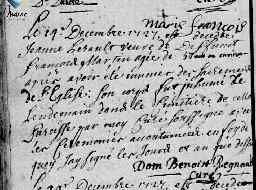 Marie francois
Le 19e Decembre 1727 est decedée
Jeanne veuve de Deffunct
francois Martin agée de
apres avoir été munie des sacremens
de l'Eglise : son corps fut inhumé le
Lendemain dans le Cimetiere de cette
Paroisse par moy Curé soussigné avec
les ceremonies accoutumées en foy de
quoy jay signé les jour et an que dessus
Dom Benoist Regnault
Curé
Decembre 1727 est decedé